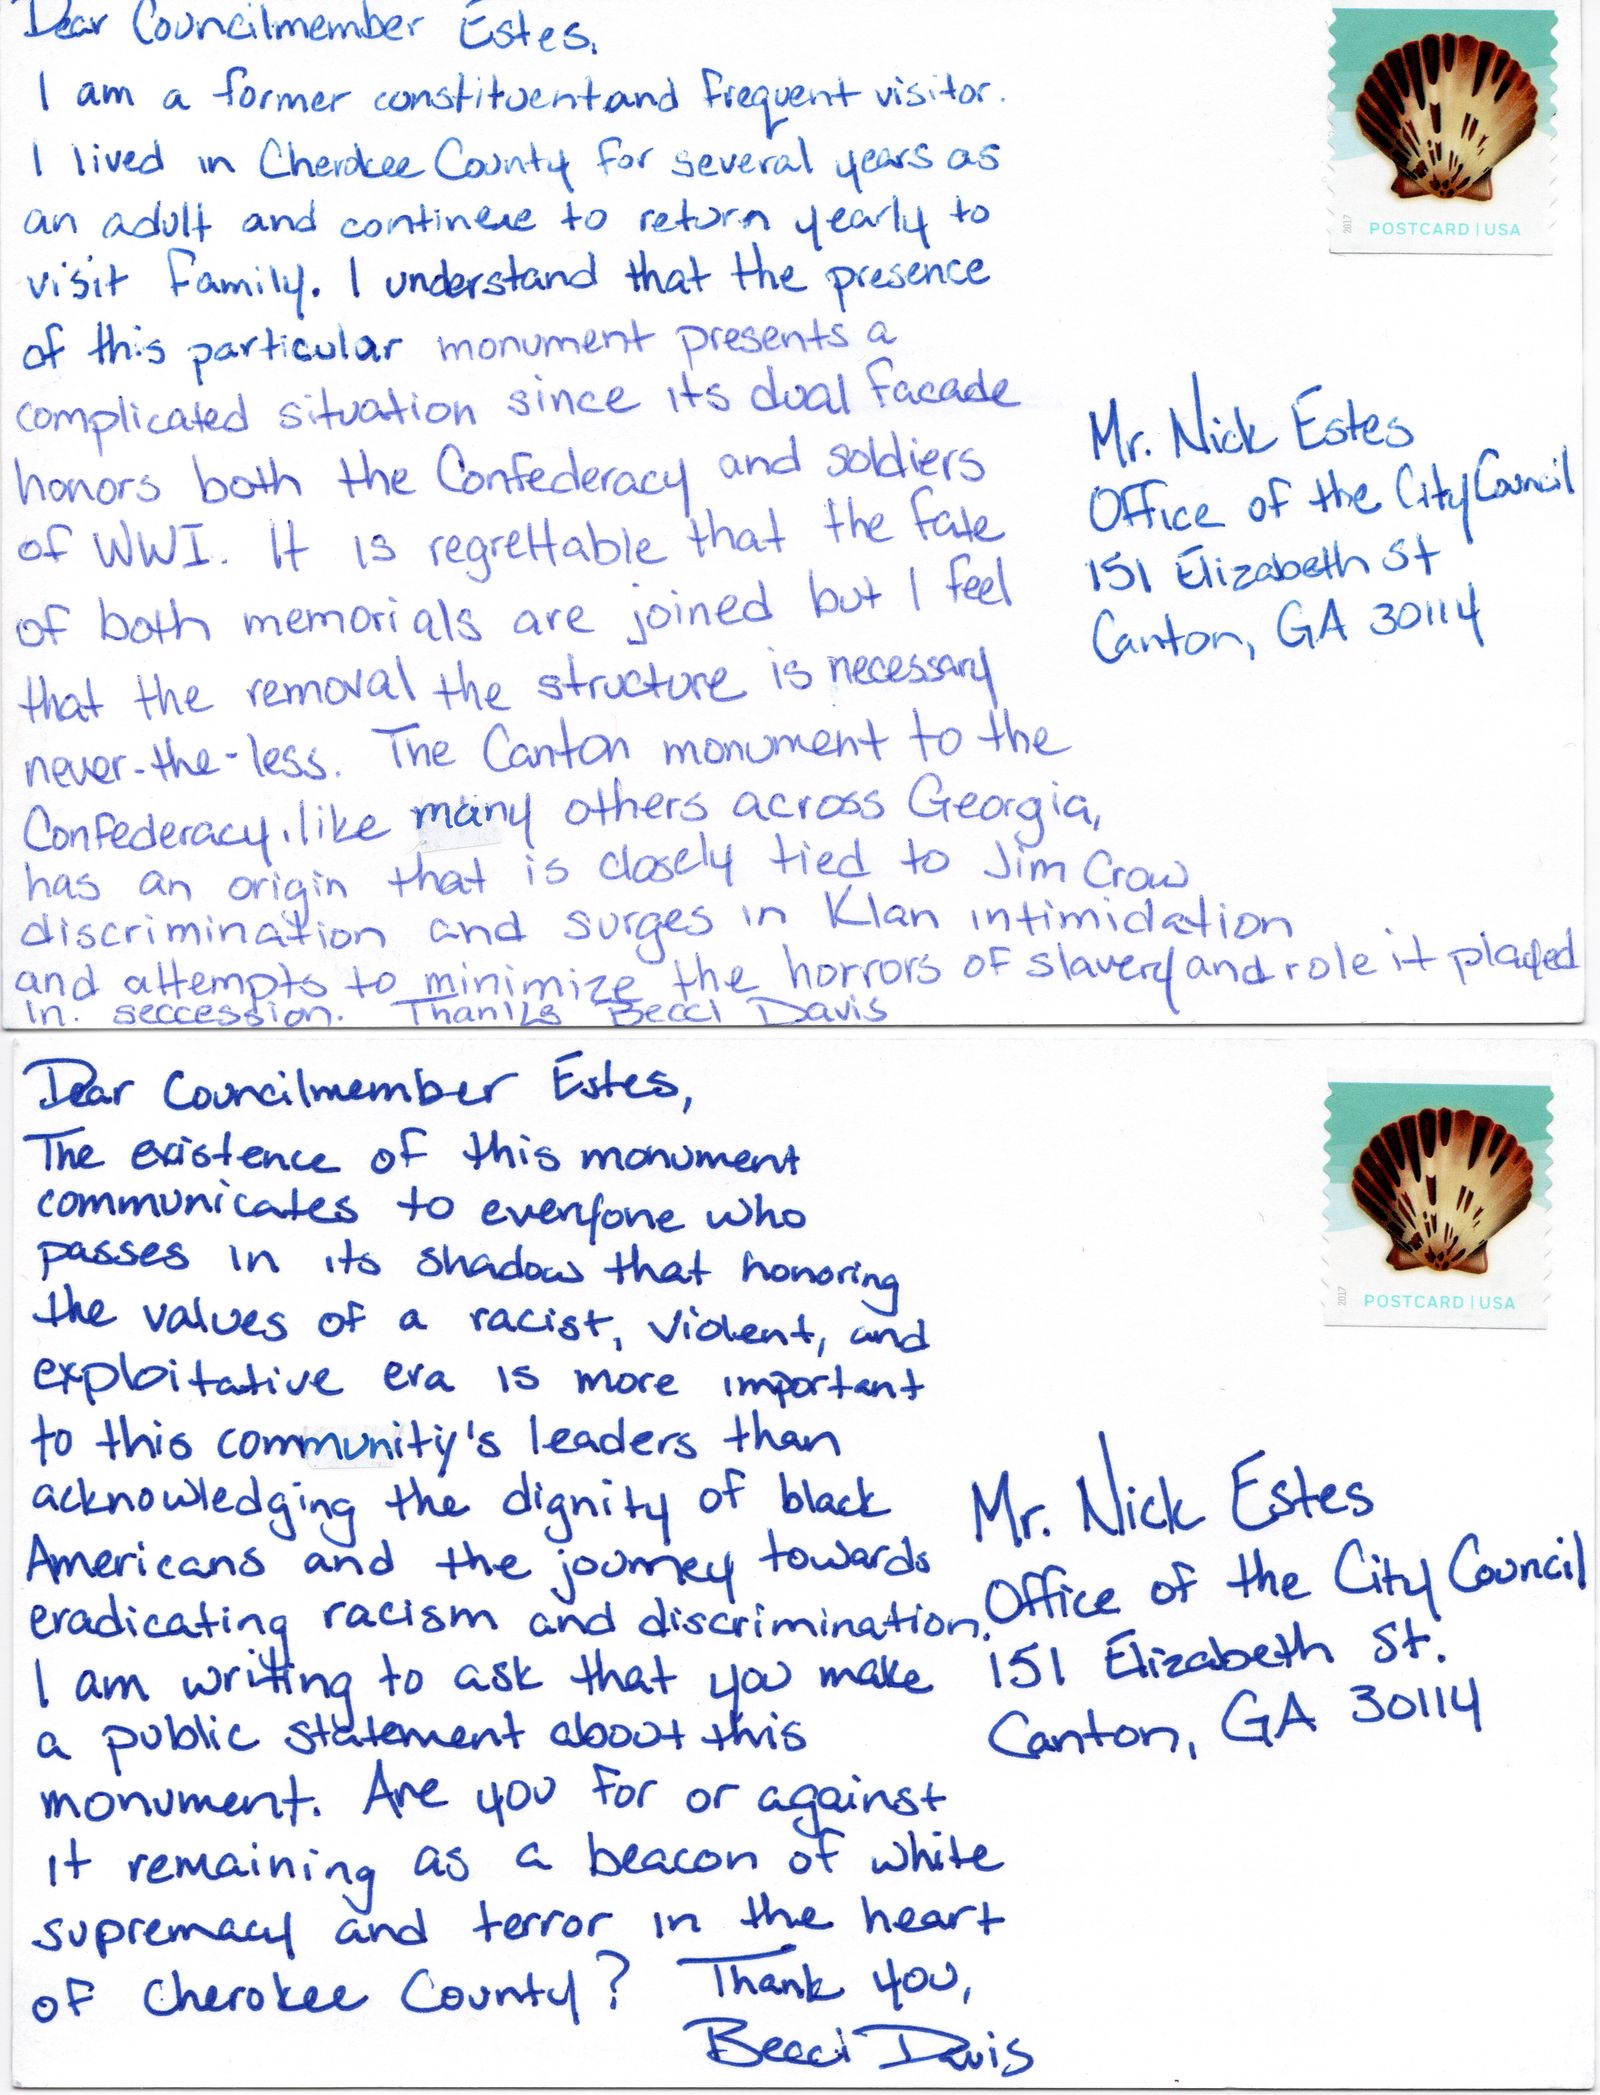 Dear Councilmember Estes,
I am a former constituent and frequent visitor.
I lived in Cherokee County for several years as
an adult and continue to return yearly to
visit family. I understand that the presence
of this particular monument presents a
complicated situation since its dual facade
honors both the Confederacy and soldiers
of WWI. It is regrettable that the fate
of both memorials are joined but I feel
that the removal the structure is necessary
never-the-less. The Canton monument to the
Confederacy, like many others across Georgia,
has an origin that is closely tied to Jim Crow
discrimination and surges in Klan intimidation
and attempts to minimize the horrors of slavery and role it played
in seccession. Thanks Becci Davis
2017
POSTCARD | USA
Mr. Nick Estes
Office of the City Council
151 Elizabeth St
Canton, GA 30114
Dear Councilmember Estes,
The existence of this monument
communicates to everyone who
passes in its shadow that honoring
the values of a racist, violent, and
exploitative era is more important
to this community's leaders than
acknowledging the dignity of black
Americans and the journey towards
eradicating racism and discrimination.
I am writing to ask that you make
a public statement about this
monument. Are you for or against
it remaining as a beacon of white
supremacy and terror in the heart
of Cherokee County? Thank you,
Becci Davis
2017
POSTCARD | USA
Mr. Nick Estes
Office of the City Council
151 Elizabeth St.
Canton, GA 30114